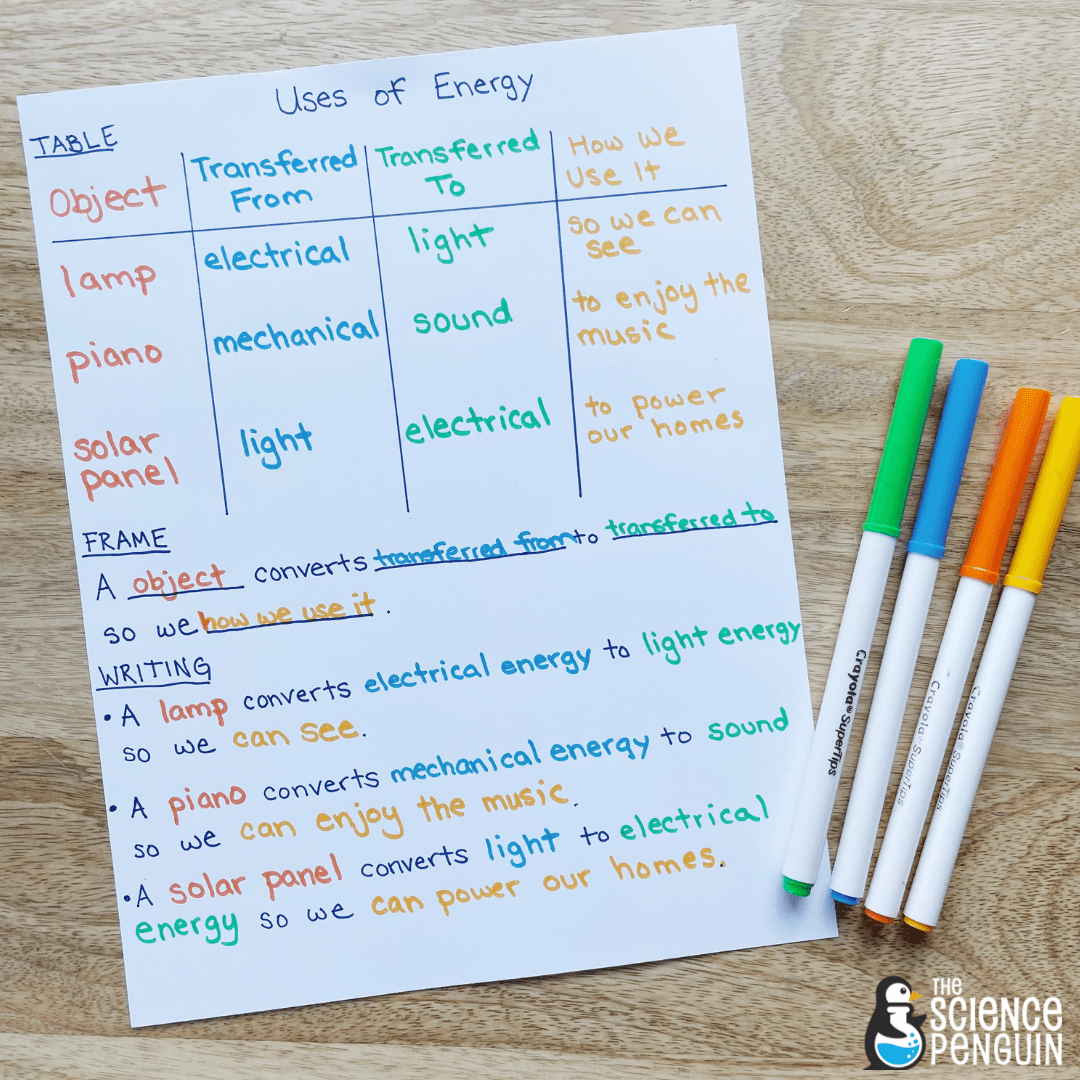 Uses of Energy
TABLE
Object | Transferred From | Transferred To | How we Use It
lamp | electrical | light | so we can see
piano | mechanical | sound | to enjoy the music
solar panel | light | electrical | to power our homes
FRAME
A object converts transferred from to transferred to
so we how we use it.
WRITING
• A lamp converts electrical energy to light energy
so we can see.
• A piano converts mechanical energy to sound
so we can enjoy the music.
• A solar panel converts light to electrical
energy so we can power our homes.
Crayola® SuperTips
Crayola® SuperTips
Crayola® SuperTips
THE
SCIENCE
PENGUIN